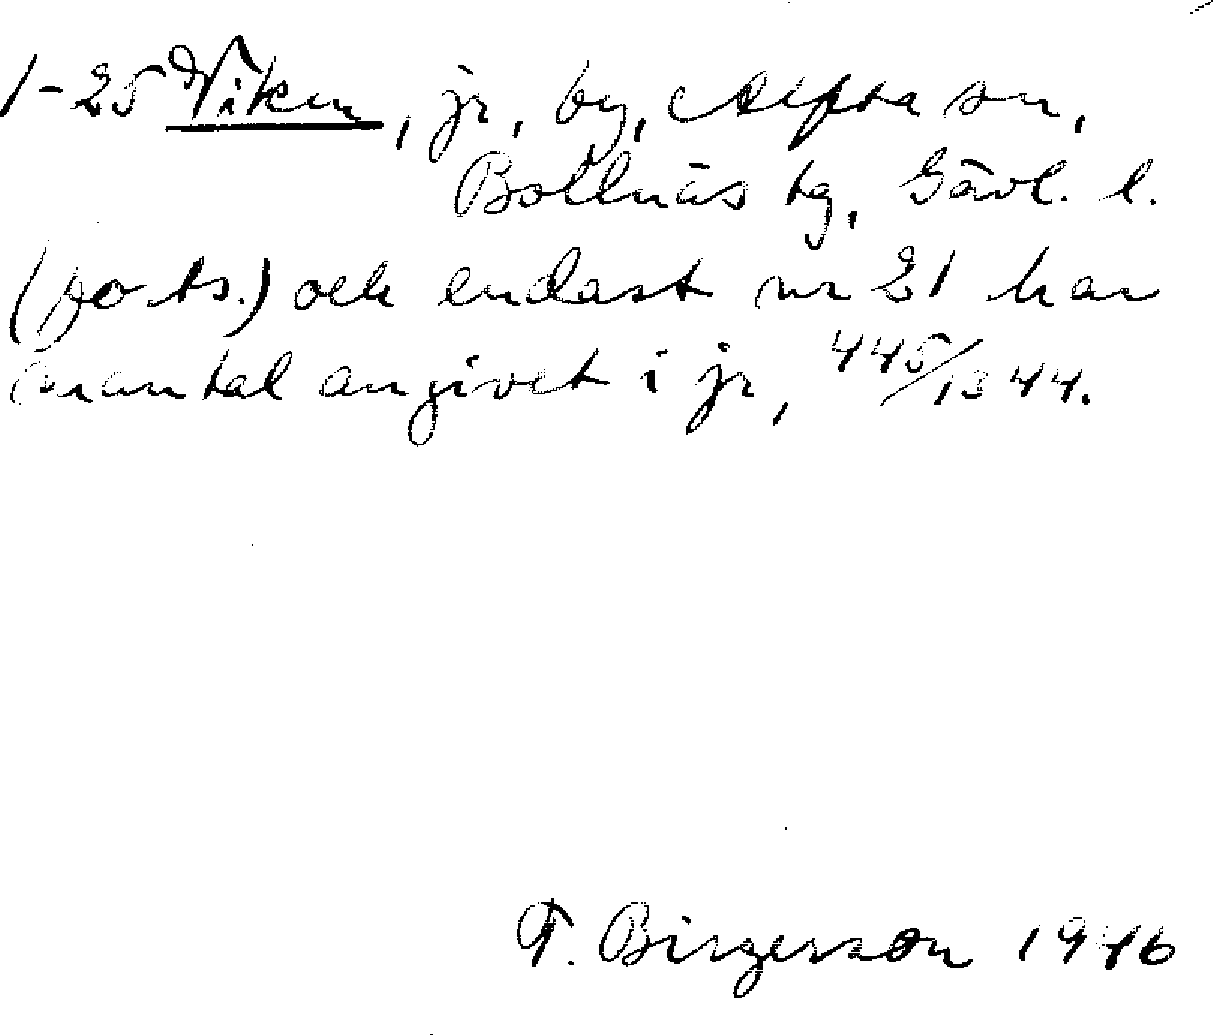 1-25 Viken, jr, by, Alfta sn,
Bollnäs tg, Gävl. l.
(forts.) och endast nr 21 har
mantal angivet i jr, 445/1344.
T. Birgerson 1946